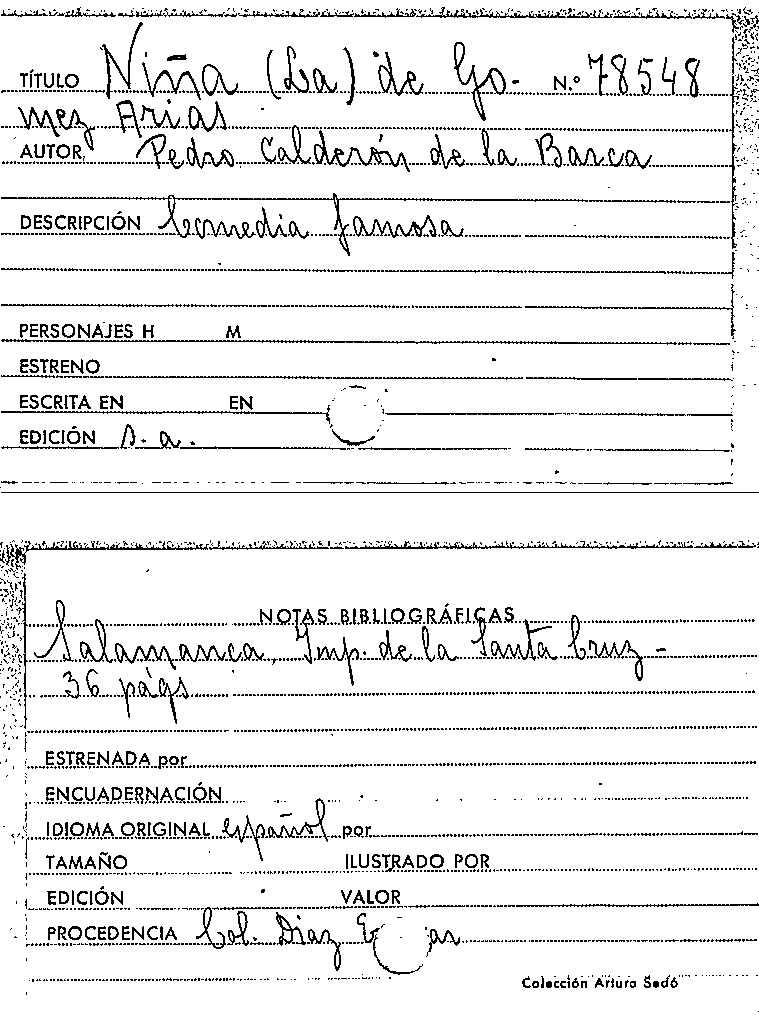 TÍTULO Niña (La) de Gó- N.º 78548
mez Arias
AUTOR, Pedro Calderón de la Barca
DESCRIPCIÓN Comedia famosa
PERSONAJES H M
ESTRENO
ESCRITA EN EN
EDICIÓN s. a.
NOTAS BIBLIOGRÁFICAS
Salamanca, Imp. de la Santa Cruz -
36 págs
ESTRENADA por
ENCUADERNACIÓN
IDIOMA ORIGINAL español por
TAMAÑO ILUSTRADO POR
EDICIÓN VALOR
PROCEDENCIA Col. Diaz
Colección Arturo Sedó